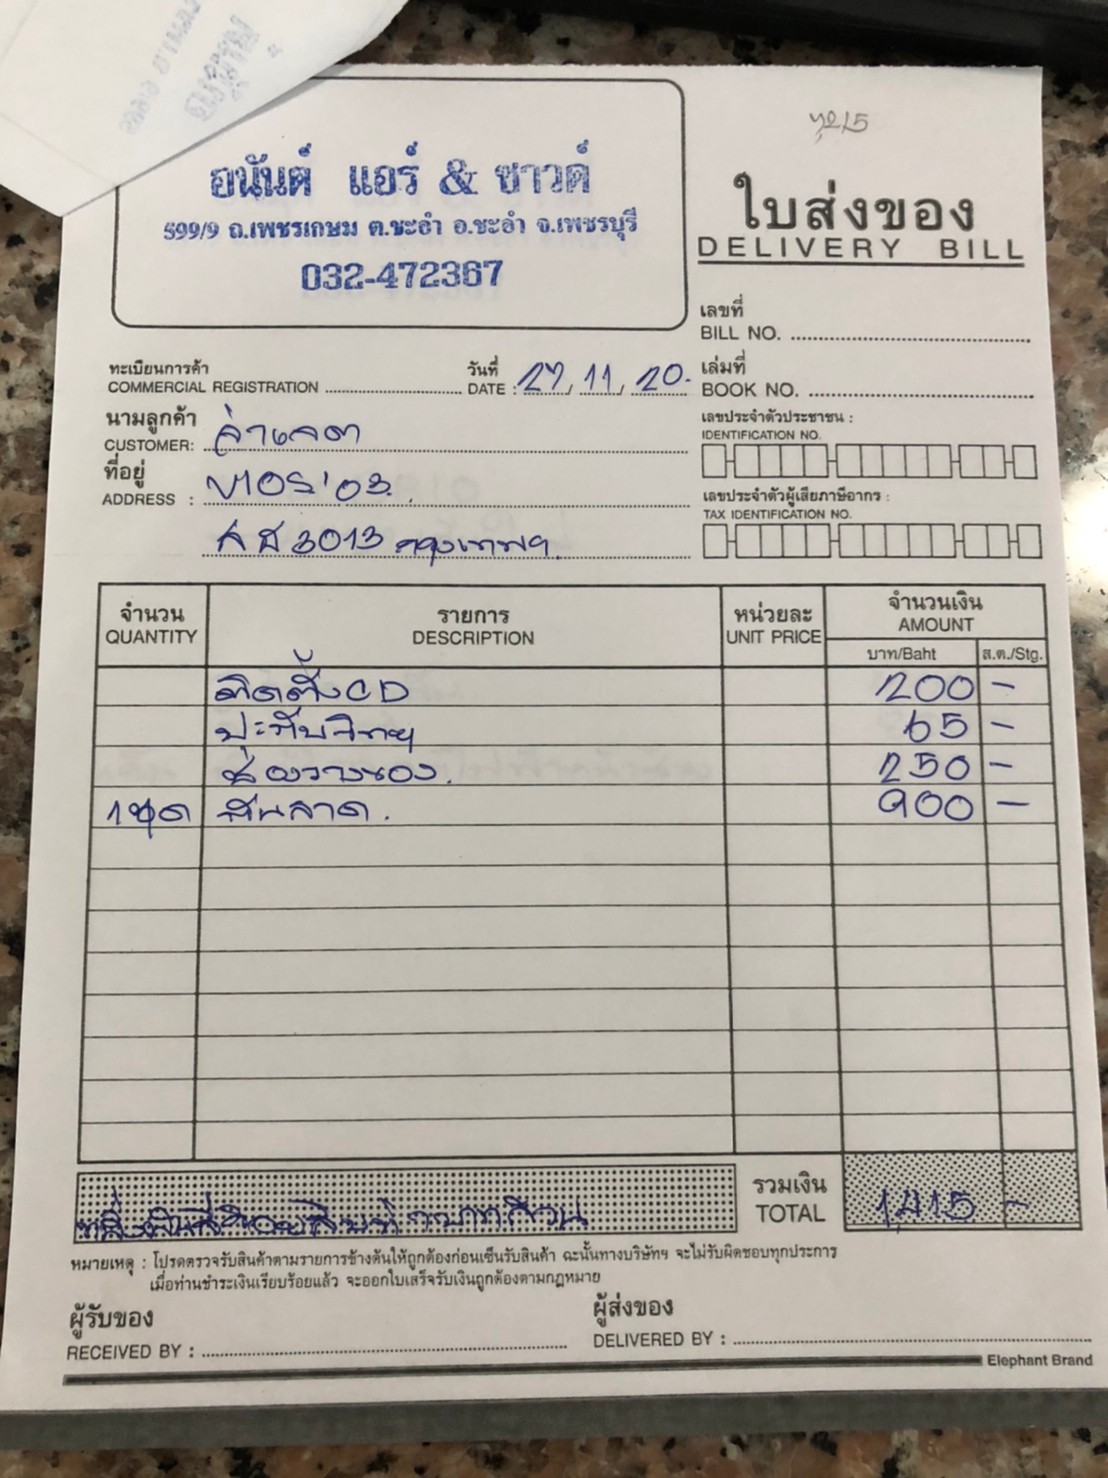 อนันต์ แอร์ & ซาวด์
599/9 ถ.เพชรเกษม ต.ชะอำ อ.ชะอำ จ.เพชรบุรี
032-472367
ใบส่งของ
DELIVERY BILL
เลขที่
BILL NO.
ทะเบียนการค้า
COMMERCIAL REGISTRATION
วันที่
DATE : 27, 11, 20.
เล่มที่
BOOK NO.
นามลูกค้า
CUSTOMER:
เลขประจำตัวประชาชน :
IDENTIFICATION NO.
ที่อยู่
ADDRESS : VIOS'03.
3013 กรุงเทพฯ
เลขประจำตัวผู้เสียภาษีอากร :
TAX IDENTIFICATION NO.
จำนวน
QUANTITY
รายการ
DESCRIPTION
หน่วยละ
UNIT PRICE
จำนวนเงิน
AMOUNT
บาท/Baht ส.ต./Stg.
ติดตั้ง CD 200 -
วิทยุ 65 -
ช่องวางของ. 250 -
1 ชุด 900 -
รวมเงิน
TOTAL
หนึ่งพันสี่ร้อยสิบห้าบาทถ้วน 1,415 -
หมายเหตุ : โปรดตรวจรับสินค้าตามรายการข้างต้นให้ถูกต้องก่อนเซ็นรับสินค้า ฉะนั้นทางบริษัทฯ จะไม่รับผิดชอบทุกประการ
เมื่อท่านชำระเงินเรียบร้อยแล้ว จะออกใบเสร็จรับเงินถูกต้องตามกฎหมาย
ผู้รับของ
RECEIVED BY :
ผู้ส่งของ
DELIVERED BY :
Elephant Brand